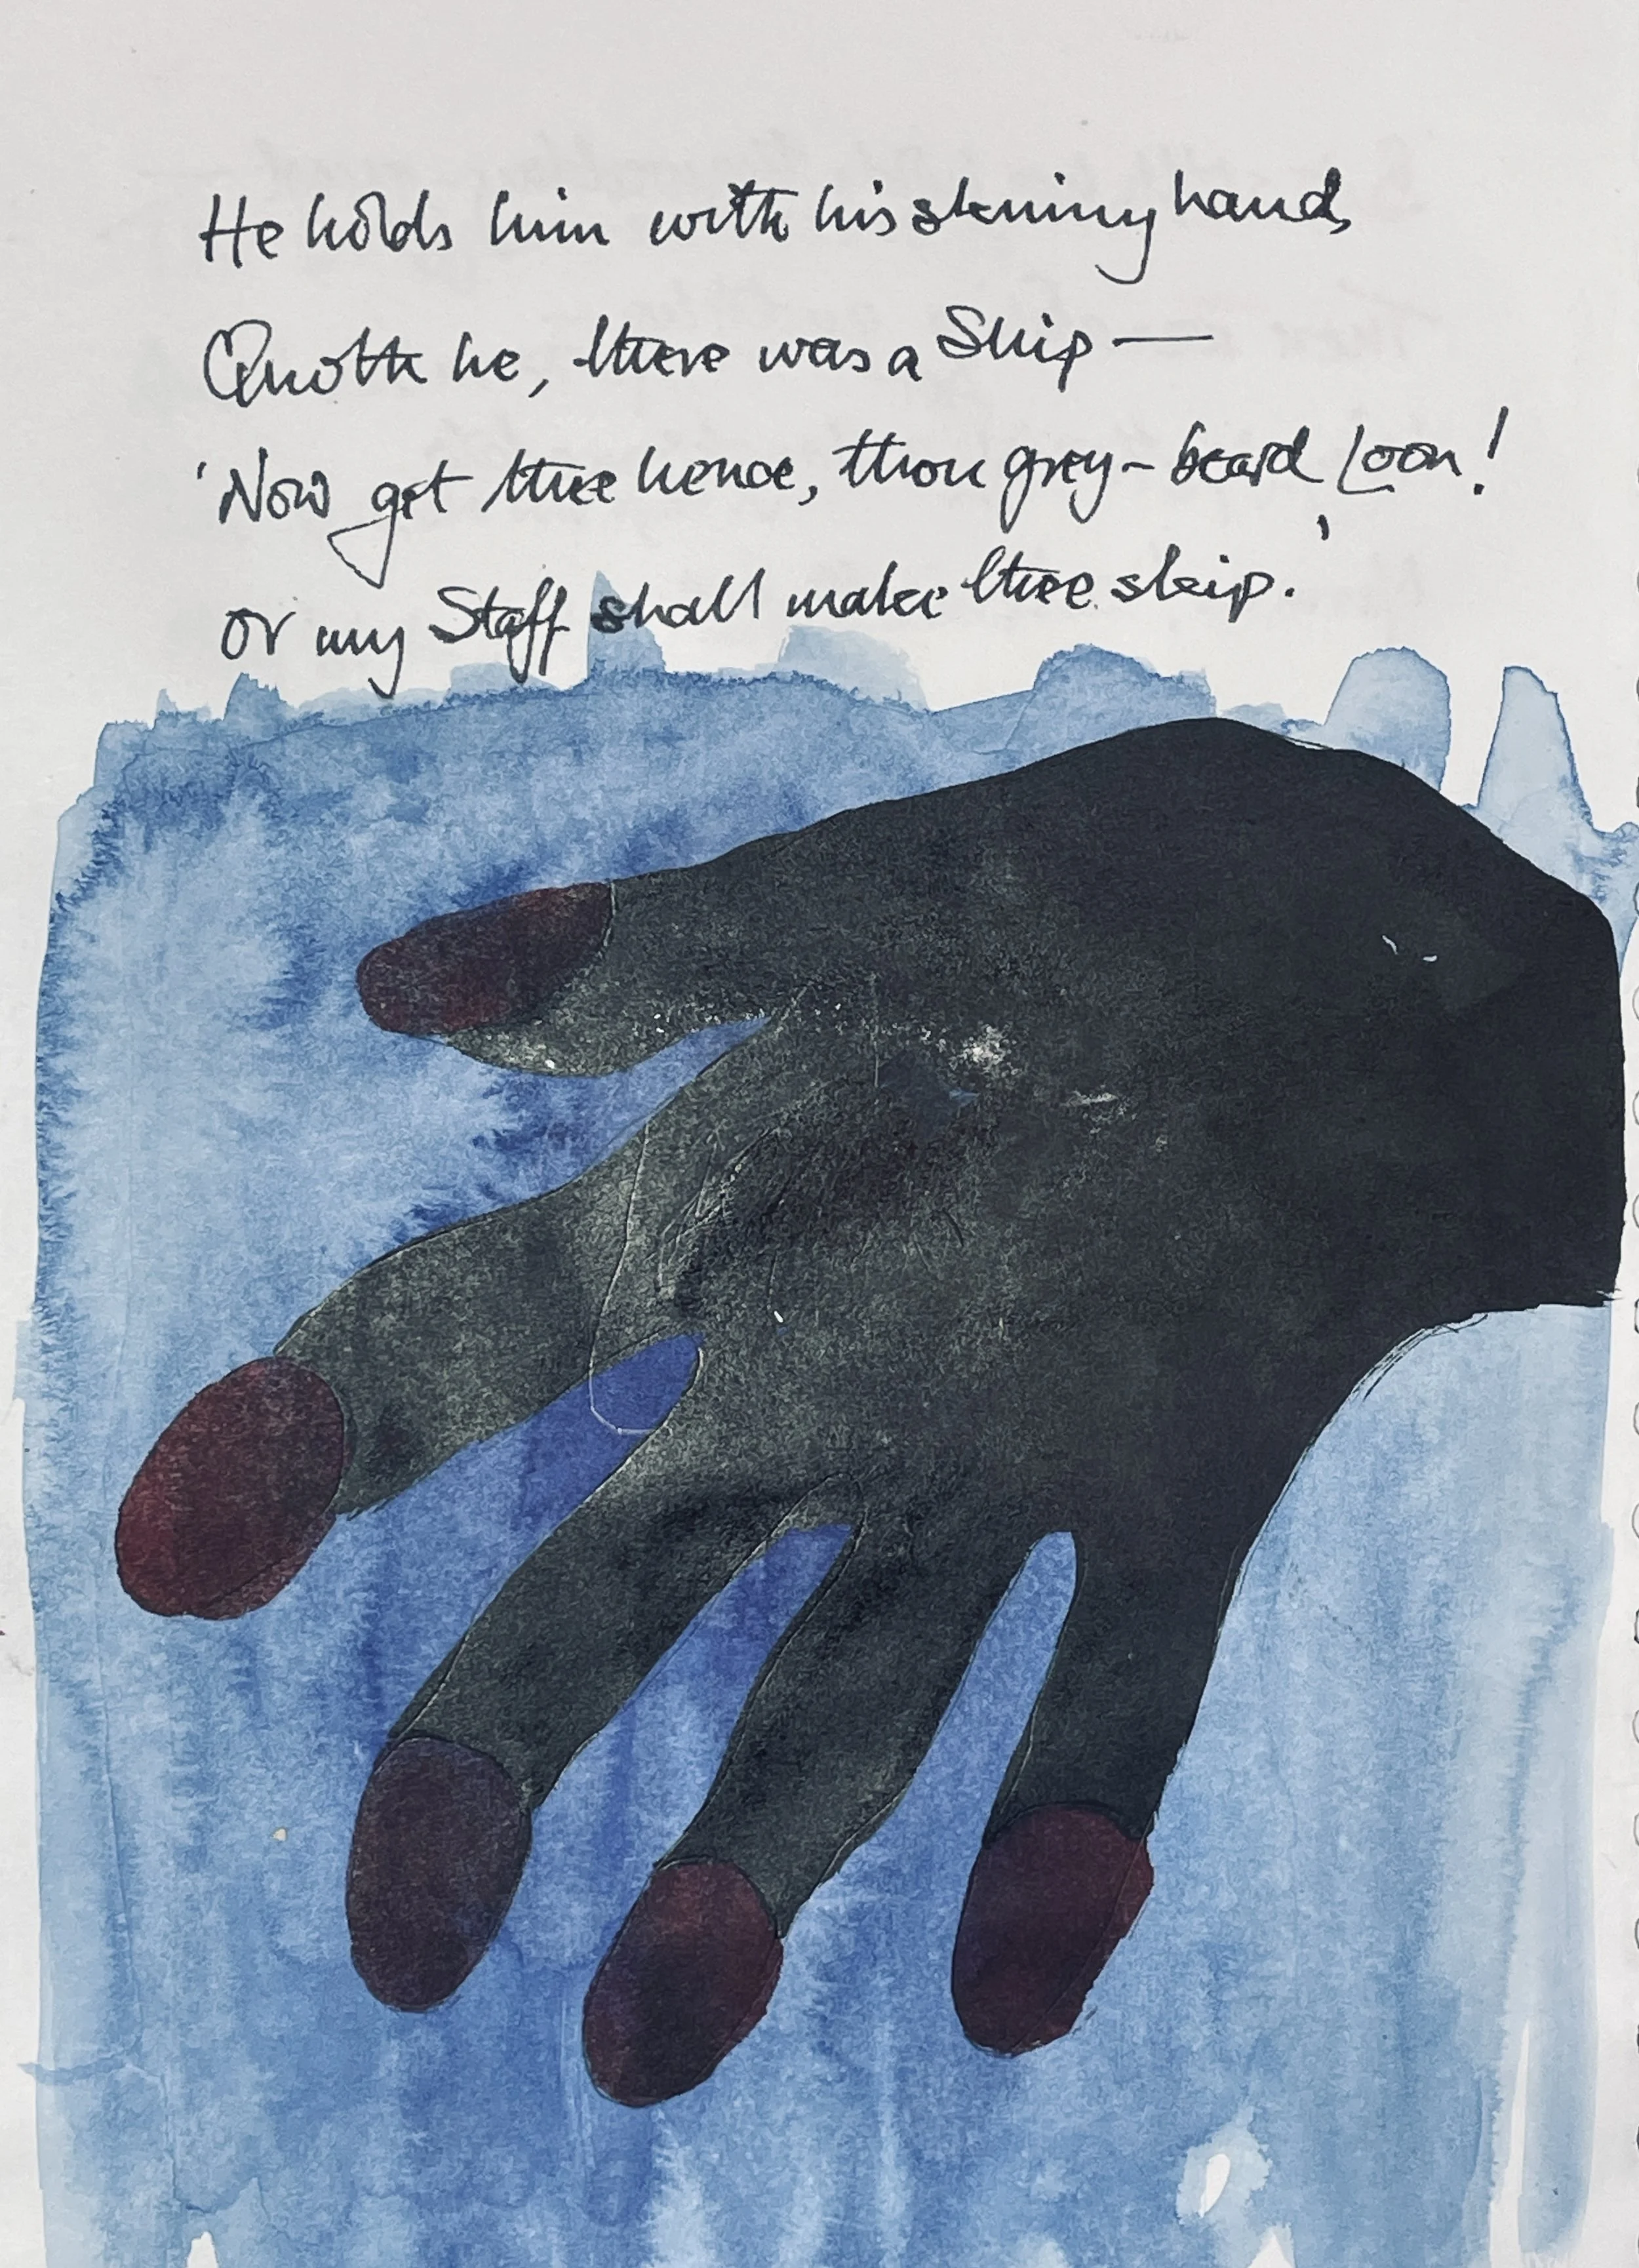 He holds him with his skinny hand,
Quoth he, there was a Ship —
'Now get thee hence, thou grey-beard Loon!
or my Staff shall make thee skip.'